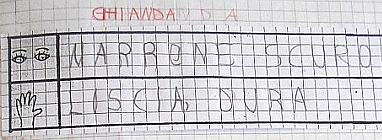 GHIANDA
MARRONE SCURO
LISCIA, DURA